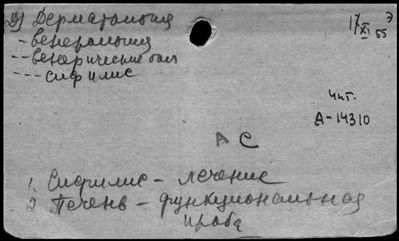 2) Дерматология
- венерология
-- венерические бол
--- сифилис
17/XI 55 Э
Чит.
А-14310
АС
1. Сифилис - лечение
2 Печень - функциональная
проба